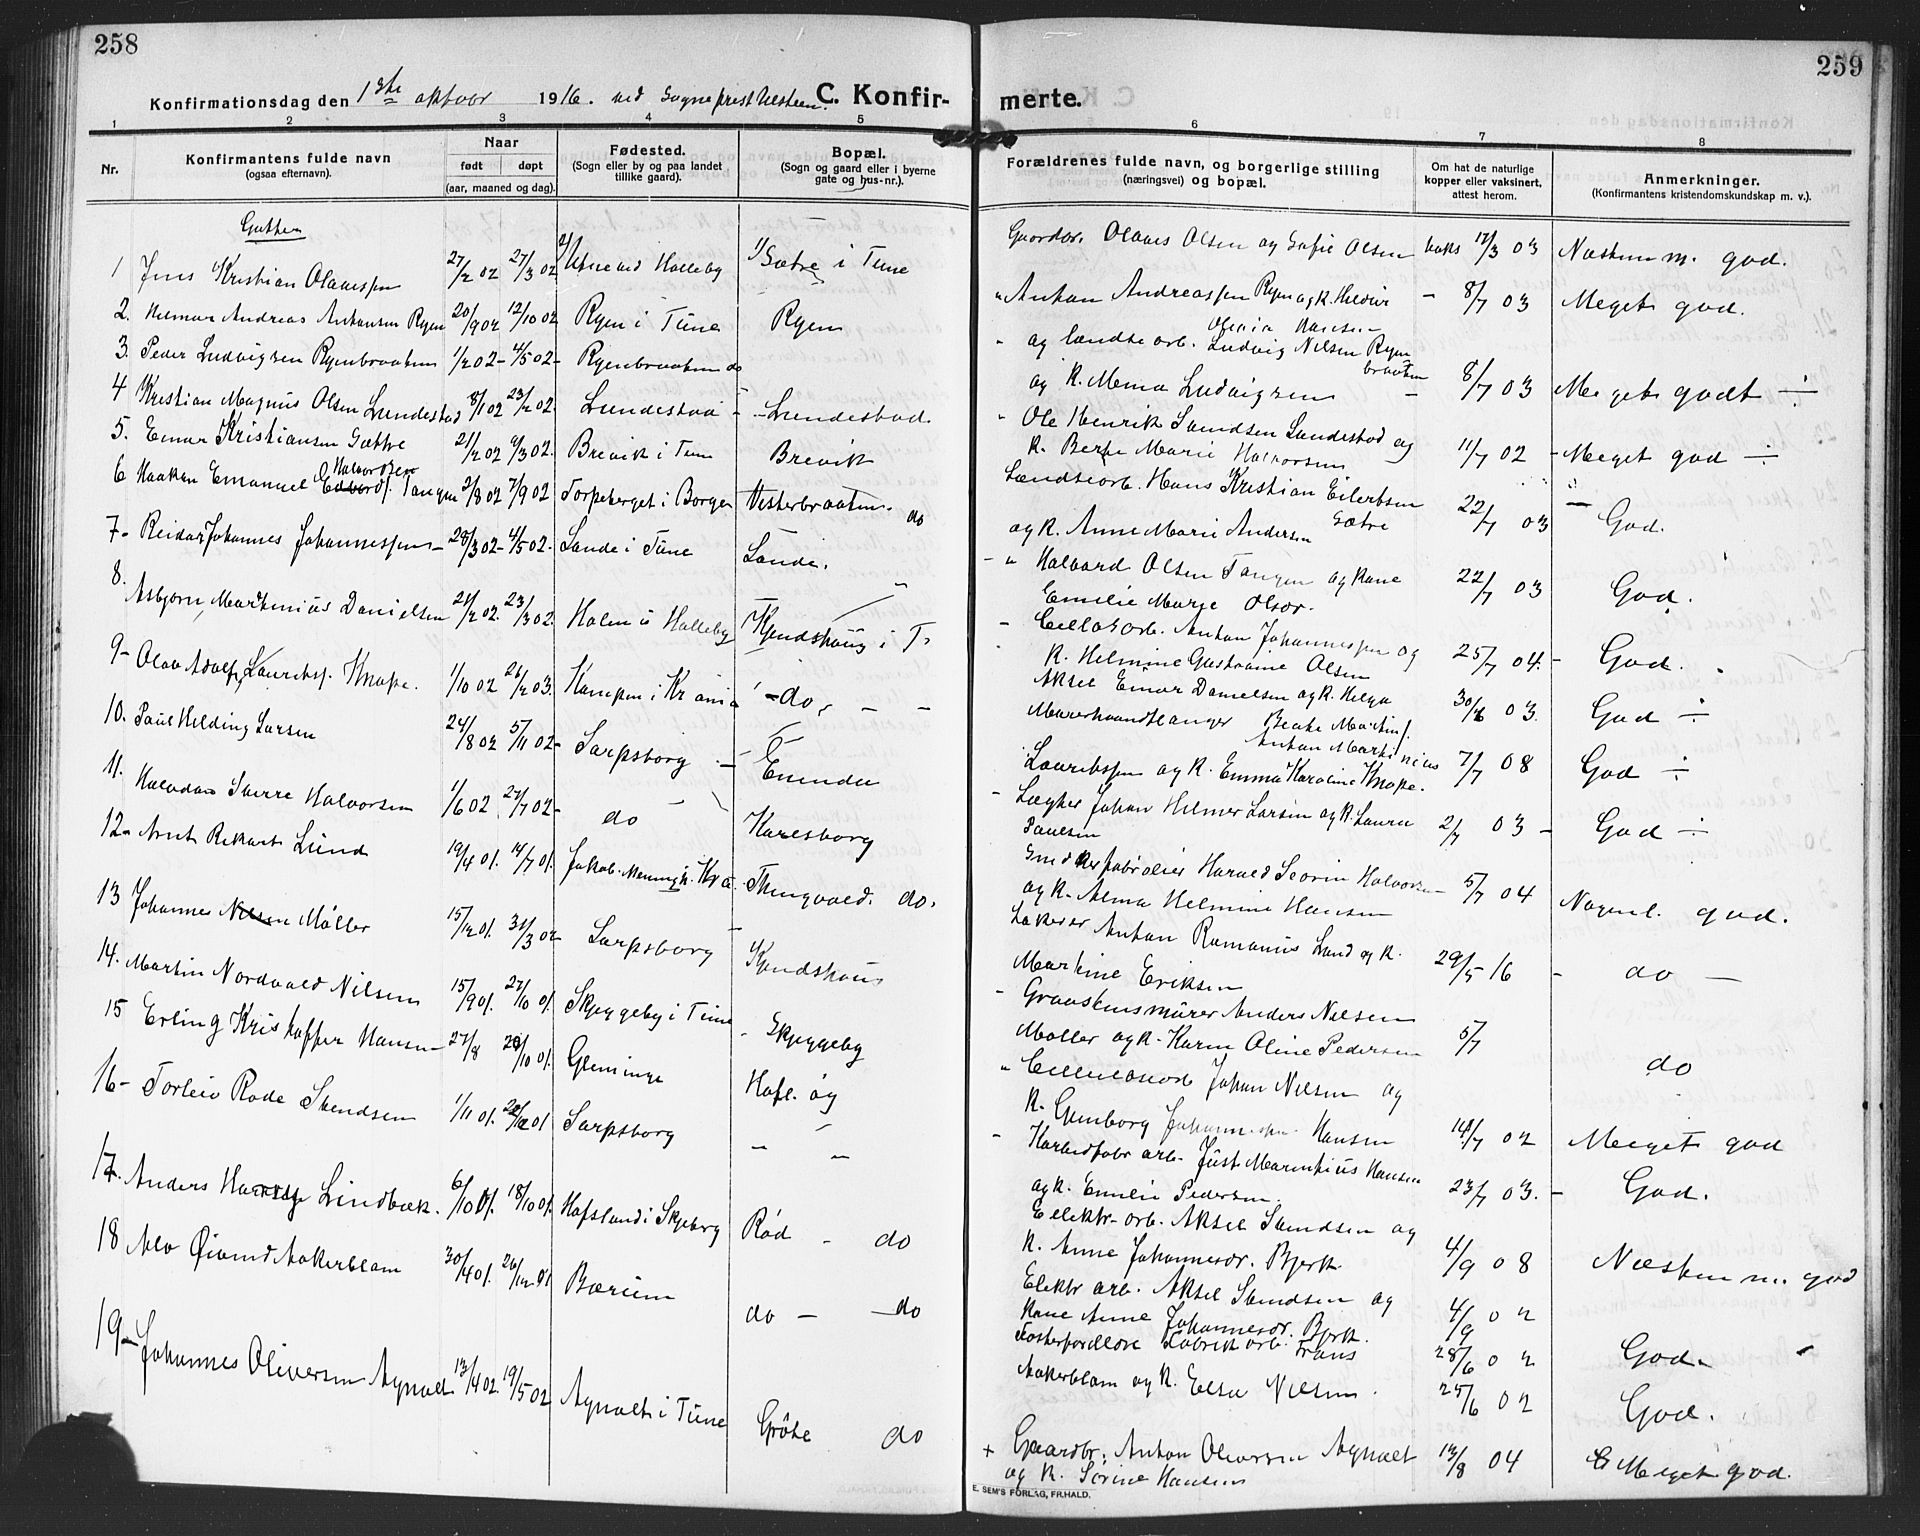 258
Konfirmationsdag den 1ste oktober 1916. ved Sogneprest C. Konfir-
1 2 3 4 5
Nr.
Konfirmantens fulde navn
(ogsaa efternavn).
Naar
født døpt
(aar, maaned og dag).
Fødested.
(Sogn eller by og paa landet
tillike gaard).
Bopæl.
(Sogn og gaard eller i byerne
gate og hus-nr.).
Gutter
1 Jens Kristian Olavessen 27/2 02 27/3 02 Halleby Sætre i Tune
2. Hilmar Andreas Antonsen Ryen 20/9 02 12/10 02 Ryen i Tune Ryen
3. Peder Ludvigsen Ryenbraaten 1/2 02 - 4/5 02 - Ryenbraaten do
4 Kristian Magnus Olsen Lundestad 8/1 02 23/2 02. Lundestad - Lundestad.
5. Einar Kristiansen Sættre 21/2 02 9/3 02. Brevik i Tune Brevik
6 Haakon Emanuel Halvordsen Edvards. Tangen 2/8 02 7/9 02 Torpeberget i Borge Vesterbraaten. do
7- Reidar Johannes Johannessen - 28/3 02 - 4/5 02. Sande i Tune Sande.
8. Asbjørn Martinius Danielsen 21/2 02. 23/3 02. Holen i Halleby Kjendshaug i T.
9- Olav Adolf Lauritss. Knape. 1/10 02 26/2 03. Kampen i Kr ania - do, - -
10. Paul Hilding Larsen 24/8 02 5/11 02 - Sarpsborg - Enenda
11. Halvdan Sverre Halvorsen 1/6 02. 27/7 02 - do Karlsborg
12- Arnt Rikart Lund 19/4 01. 14/7 01. Jakob. Menigh. Kr a. Thingvold. do.
13 Johannes Nilsen Møller 15/12 01. 31/3 02 Sarpsborg Kjendshaug
14. Martin Nordvald Nilsen 15/9 01. 27/10 01. Skjeggeby i Tune - Skjeggeby
15 Erling Kristoffer Hansen - 27/8 20/10 01. Glemminge Hafl. og
16- Torleiv Rode Svendsen 1/11 01. 01 Sarpsborg - -
17. Anders Lindbæk. 6/10 01. 18/10 01. Hafslund i Skjeberg Rød - do
18 Alv Øivind Aakerblom 30/4 01. 26/12 01 Bærum do - - do
19- Johannes Oliversen Agnalt 13/4 02. 19/5 02 Agnalt i Tune Grøte do
259
merte.
6 7 8
Forældrenes fulde navn, og borgerlige stilling
(næringsvei) og bopæl.
Om hat de naturlige
kopper eller vaksinert,
attest herom.
Anmerkninger.
(Konfirmantens kristendomskundskap m. v.).
Gaardbr. Olaves Olsen og Sofie Olsen vaks 12/3 03 Næsten m. god.
" Anton Andreassen Ryen og K. - 8/7 03 Meget god.
Olavia Hansen
" og landse arb. Ludvig Nilsen Ryen
braaten
og K. Mina Ludvigsen - 8/7 03 Meget godt ÷
" Ole Henrik Svendsen Lundestad og
K. Berte Marie Halvorsen 11/7 02 - Meget god ÷
Landse arb. Hans Kristian Eilertsen
Sætre
og K. Anne Marie Andersen 22/7 03 God.
- " Halvard Olsen Tangen og Kone
Emilie Marie Olsdr. 22/7 03 God.
- Cellulosarb. Anton Johannessen og
K. Helmine Gustavine Olsen 25/7 04 - God.
Aksel Einar Danielsen og K. Helga
Beate Martins. 30/6 03. God ÷
Murerhaandlanger
Anton Martinius
Lauritssen og K. Emma Karoline Knape. 7/7 08 God ÷
- Johan Hilmer Larsen og K. Laura
Paulsen 2/7 03 - God ÷
Harald Severin Halvorsen
og K. Alma Helmine Hansen 5/7 04 Nogenl. god.
Anton Romanus Lund og K.
Martine Eriksen 29/5 16 - do -
- Graastensmurer Anders Nilsen
Møller og K. Karen Oline Pedersen 5/7 do
" Johan Nilsen og
K. Johannesen Hansen 18/7 02 Meget god
- Karbidfabr arb. Just Marentius Hansen
og K. Emilie Pedersen. 23/7 03. - God.
Elektr. arb. Aksel Svendsen og
K. Anne Johannesdr. Bjerk 4/9 08 Næsten m. god
Elektr arb. Aksel Svendsen og
Kone Anne Johannesdr. Bjerk. 4/9 02
Fosterforeldre Fabrik arb. Frans 28/6 02 God.
Aakerblom og K. Elsa Nilsen. 25/6 02 God.
+ Gaardbr. Anton Oliversen Agnalt 13/8 04 Meget god.
og K. Sørine Hansen
E. SEM'S FORLAG, FR.HALD.